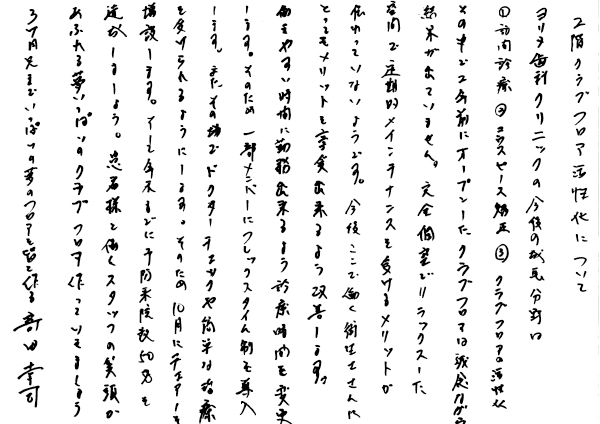 2階クラブフロア活性化について
ヨリタ歯科クリニックの今後の成長分野は
①訪問診療 ②マウスピース矯正 ③クラブフロアの活性化
その中で2年前にオープンしたクラブフロアは残念ながら
結果が出ていません。完全個室でリラックスした
空間で定期的メインテナンスを受けるメリットが
伝わっていないようです。今後ここで働く衛生士さんに
とってもメリットを享受出来るよう改善します。
働きやすい時間に勤務出来るよう診療時間を変更
します。そのため一部メンバーにフレックスタイム制を導入
します。またその場でドクターチェックや簡単な治療
を受けられるようにします。そのため10月にチェアーを
増設します。そして年末までに予防来院数50名を
達成しましょう。患者様と働くスタッフの笑顔が
あふれる夢いっぱいのクラブフロアを作っていきましょう
3ヶ月先までいっぱいの夢のフロアを皆で作る 寄田幸司